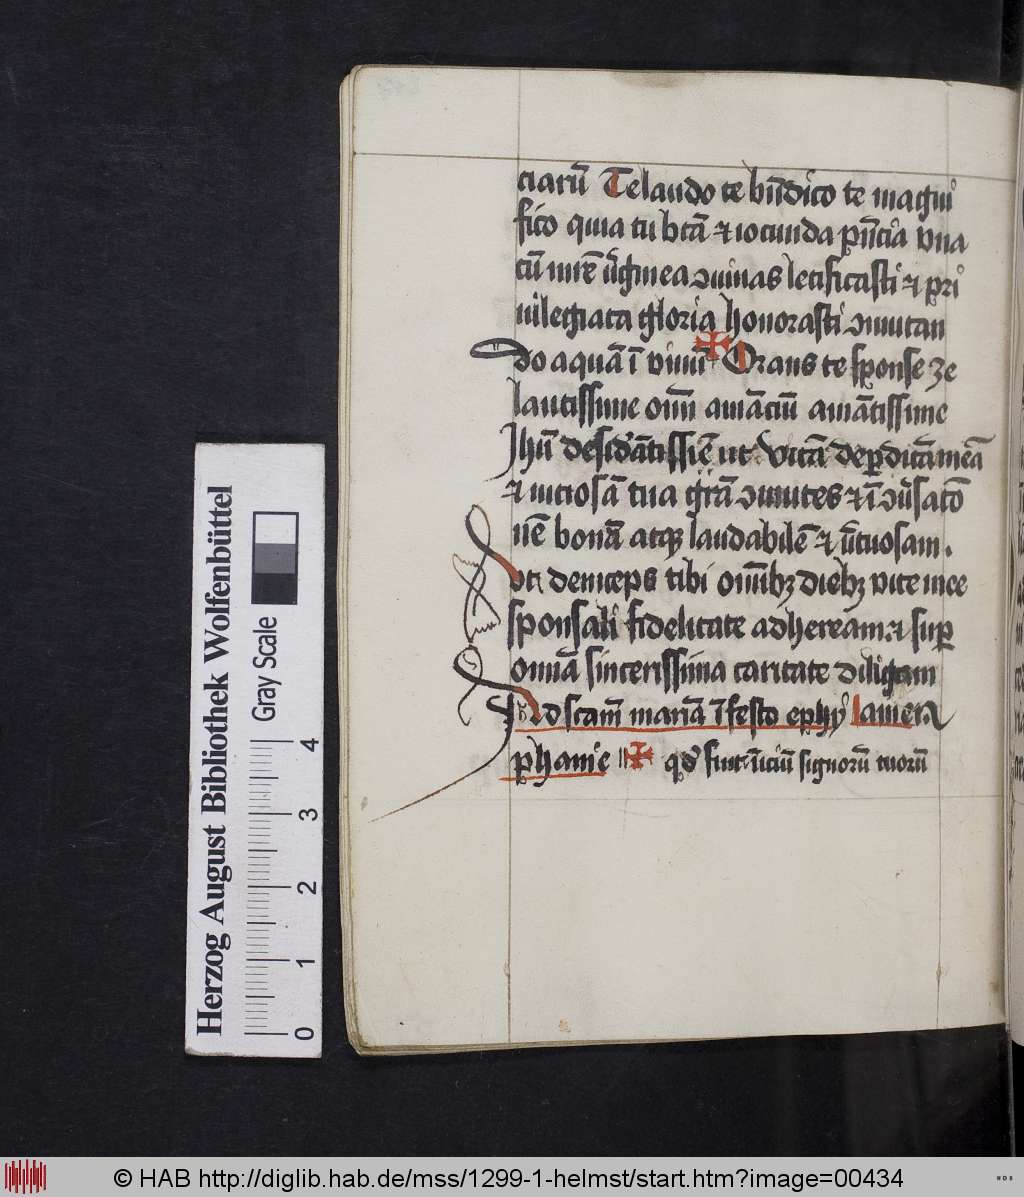 ciarū Te laudo te bn̄dico te magni
fico quia tu btā et iocunda pn̄cia vna
cū mrē v̄ginea nuinas letificasti et pri
uilegiata gloria honorasti ɔmutan
do aquā ī vinū Orans te sponse ze
lantissime om̄ amāciū amātissime
Jhū desidātissiē ut vitā deperditā meā
et viciosā tua grā ɔmutes et ī ɔūsatō
nē bonā atqꝫ laudabilē et v̄tuosam.
vt deinceps tibi om̄ibꝫ diebꝫ vite mee
sponsali fidelitate adheream et sup
omnia sincerissima caritate diligam
Ad scām mariā ī festo ephy Lamen
phanie qd sint īiciū signorū tuorū
Herzog August Bibliothek Wolfenbüttel
Gray Scale
0 1 2 3 4
© HAB http://diglib.hab.de/mss/1299-1-helmst/start.htm?image=00434